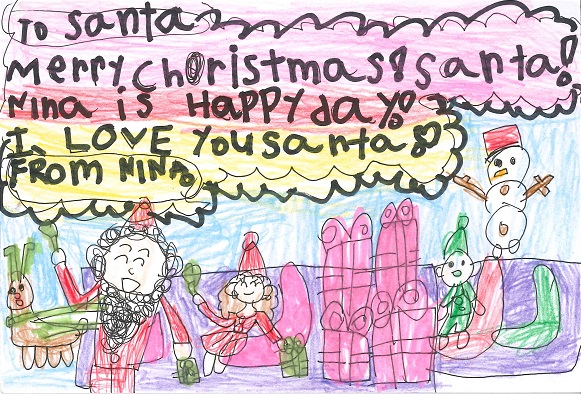 To santa
merry choristmas! santa!
Nina is HAPPY day!
I LOVE YOU santa!
FROM NINA